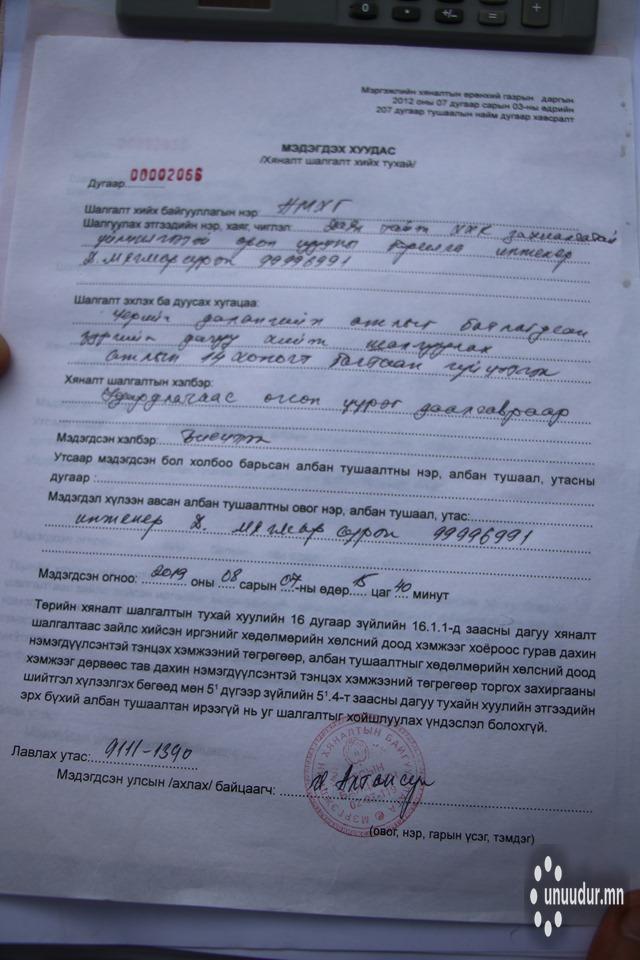 Мэргэжлийн хяналтын ерөнхий газрын даргын
2012 оны 07 дугаар сарын 03-ны өдрийн
207 дугаар тушаалын найм дугаар хавсралт
МЭДЭГДЭХ ХУУДАС
/Хяналт шалгалт хийх тухай/
Дугаар 00002066
Шалгалт хийх байгууллагын нэр: НМХГ
Шалгуулах этгээдийн нэр, хаяг, чиглэл: ХХК захиалагчтай
орон сууцны инженер
Д. Мягмарсүрэн 99996991
Шалгалт эхлэх ба дуусах хугацаа:
далангийн ажлыг батлагдсан
зургийн дагуу хийж шалгуулах
ажлын 14 хоногт багтаан гүйцэтгэх
Хяналт шалгалтын хэлбэр:
Удирдлагаас өгсөн үүрэг даалгавраар
Мэдэгдсэн хэлбэр: Биечлэн
Утсаар мэдэгдсэн бол холбоо барьсан албан тушаалтны нэр, албан тушаал, утасны
дугаар :
Мэдэгдэл хүлээн авсан албан тушаалтны овог нэр, албан тушаал, утас:
инженер Д. Мягмарсүрэн 99996991
Мэдэгдсэн огноо: 2019 оны 08 сарын 07-ны өдөр 15 цаг 40 минут
Төрийн хяналт шалгалтын тухай хуулийн 16 дугаар зүйлийн 16.1.1-д заасны дагуу хяналт
шалгалтаас зайлс хийсэн иргэнийг хөдөлмөрийн хөлсний доод хэмжээг хоёроос гурав дахин
нэмэгдүүлсэнтэй тэнцэх хэмжээний төгрөгөөр, албан тушаалтныг хөдөлмөрийн хөлсний доод
хэмжээг дөрвөөс тав дахин нэмэгдүүлсэнтэй тэнцэх хэмжээний төгрөгөөр торгох захиргааны
шийтгэл хүлээлгэх бөгөөд мөн 5¹ дүгээр зүйлийн 5¹.4-т заасны дагуу тухайн хуулийн этгээдийн
эрх бүхий албан тушаалтан ирээгүй нь уг шалгалтыг хойшлуулах үндэслэл болохгүй.
Лавлах утас: 9111-1390
Мэдэгдсэн улсын /ахлах/ байцаагч:
(овог, нэр, гарын үсэг, тэмдэг)
unuudur.mn